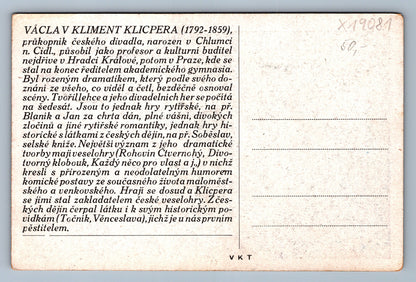 VÁCLAV KLIMENT KLICPERA (1792-1859),
průkopník českého divadla, narozen v Chlumci
n. Cidl., působil jako profesor a kulturní buditel
nejdříve v Hradci Králové, potom v Praze, kde se
stal na konec ředitelem akademického gymnasia.
Byl rozeným dramatikem, který podle svého do-
znání ze všeho, co viděl a četl, bezděčně osnoval
scény. Tvořil lehce a jeho divadelních her se počítá
na šedesát. Jsou to jednak hry rytířské, na př.
Blaník a Jan za chrta dán, plné vášní, divokých
zločinů a jiné rytířské romantiky, jednak hry hi-
storické s látkami z českých dějin, na př. Soběslav,
selské kníže. Největší význam z jeho dramatické
tvorby mají veselohry (Rohovín Čtverrohý, Divo-
tvorný klobouk, Každý něco pro vlast a j.) v nichž
kreslí s přirozeným a neodolatelným humorem
komické postavy ze současného života maloměst-
ského a venkovského. Hrají se dosud a Klicpera
se jimi stal zakladatelem české veselohry. Z čes-
kých dějin čerpal látku i k svým historickým po-
vídkám (Točník, Věnceslava), jichž je u nás prvním
pěstitelem.
X19081
VKT